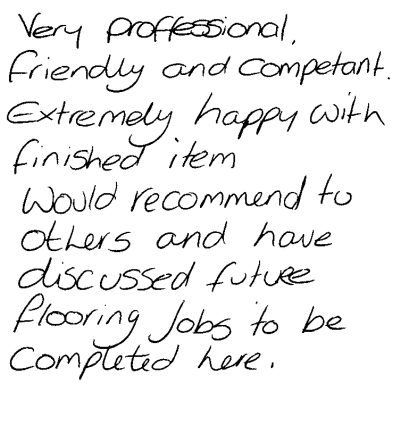 Very proffessional,
friendly and competant.
Extremely happy with
finished item
Would recommend to
others and have
discussed future
flooring Jobs to be
Completed here.